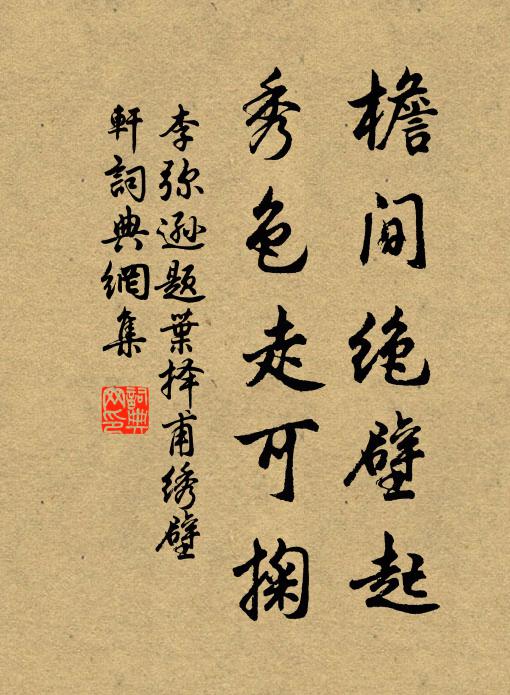 檐间绝壁起
秀色走可掬
李弥逊题葉择甫绣壁
軒詞典網集
詞典網印